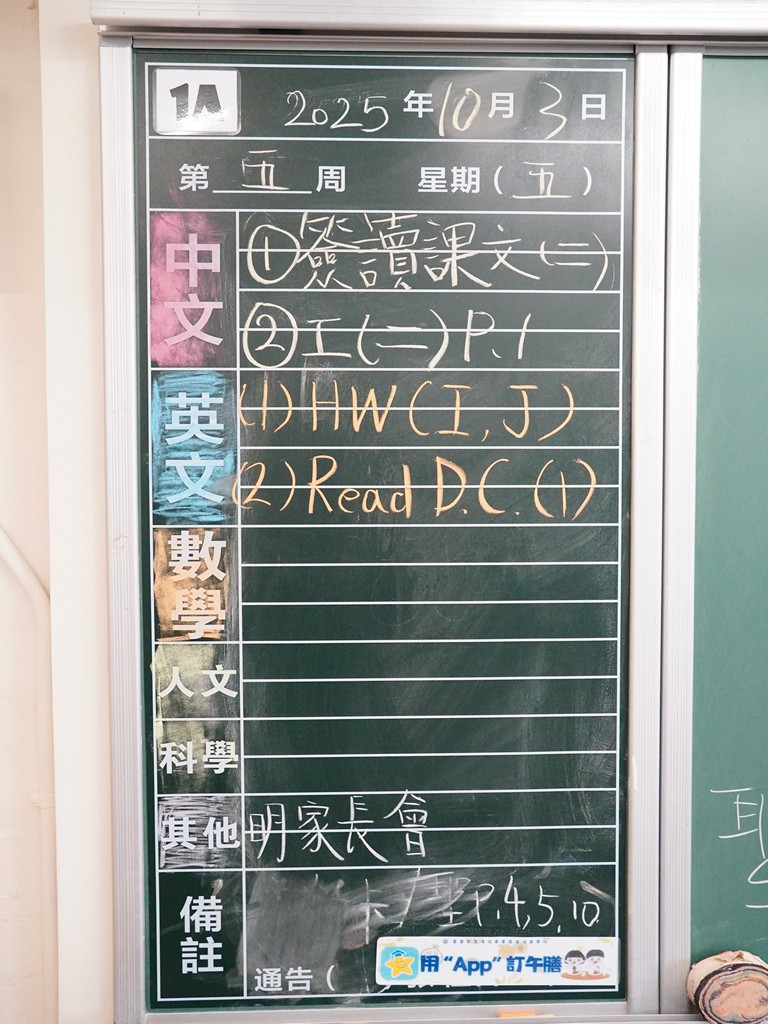 1A 2025年10月3日
第五周 星期(五)
中文 ①簽讀課文(二)
②工(二)P.1
英文 (1) HW (I, J)
(2) Read D.C. (1)
數學
人文
科學
其他 明家長會
備註 P.4,5,10
用“App”訂午膳
通告(